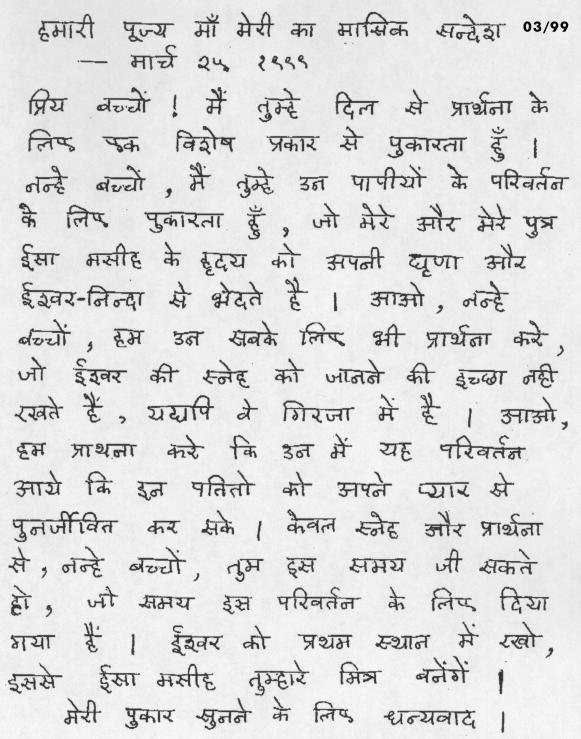 हमारी पूज्य माँ मेरी का मासिक सन्देश 03/99
— मार्च २५ १९९९
प्रिय बच्चों ! मैं तुम्हे दिल से प्रार्थना के
लिए एक विशेष प्रकार से पुकारता हूँ ।
नन्हे बच्चों , मैं तुम्हे उन पापीयों के परिवर्तन
के लिए पुकारता हूँ , जो मेरे और मेरे पुत्र
ईसा मसीह के हृदय को अपनी घृणा और
ईश्वर-निन्दा से भेदते है । आओ , नन्हे
बच्चों , हम उन सबके लिए भी प्रार्थना करे ,
जो ईश्वर की स्नेह को जानने की इच्छा नही
रखते हैं , यद्यपि वे गिरजा में है । आओ,
हम प्राथना करे कि उन में यह परिवर्तन
आये कि इन पतितो को अपने प्यार से
पुनर्जीवित कर सके । केवल स्नेह और प्रार्थना
से , नन्हे बच्चों , तुम इस समय जी सकते
हो , जो समय इस परिवर्तन के लिए दिया
गया हैं । ईश्वर को प्रथम स्थान में रखो ,
इससे ईसा मसीह तुम्हारे मित्र बनेंगें ।
मेरी पुकार सुनने के लिए धन्यवाद ।